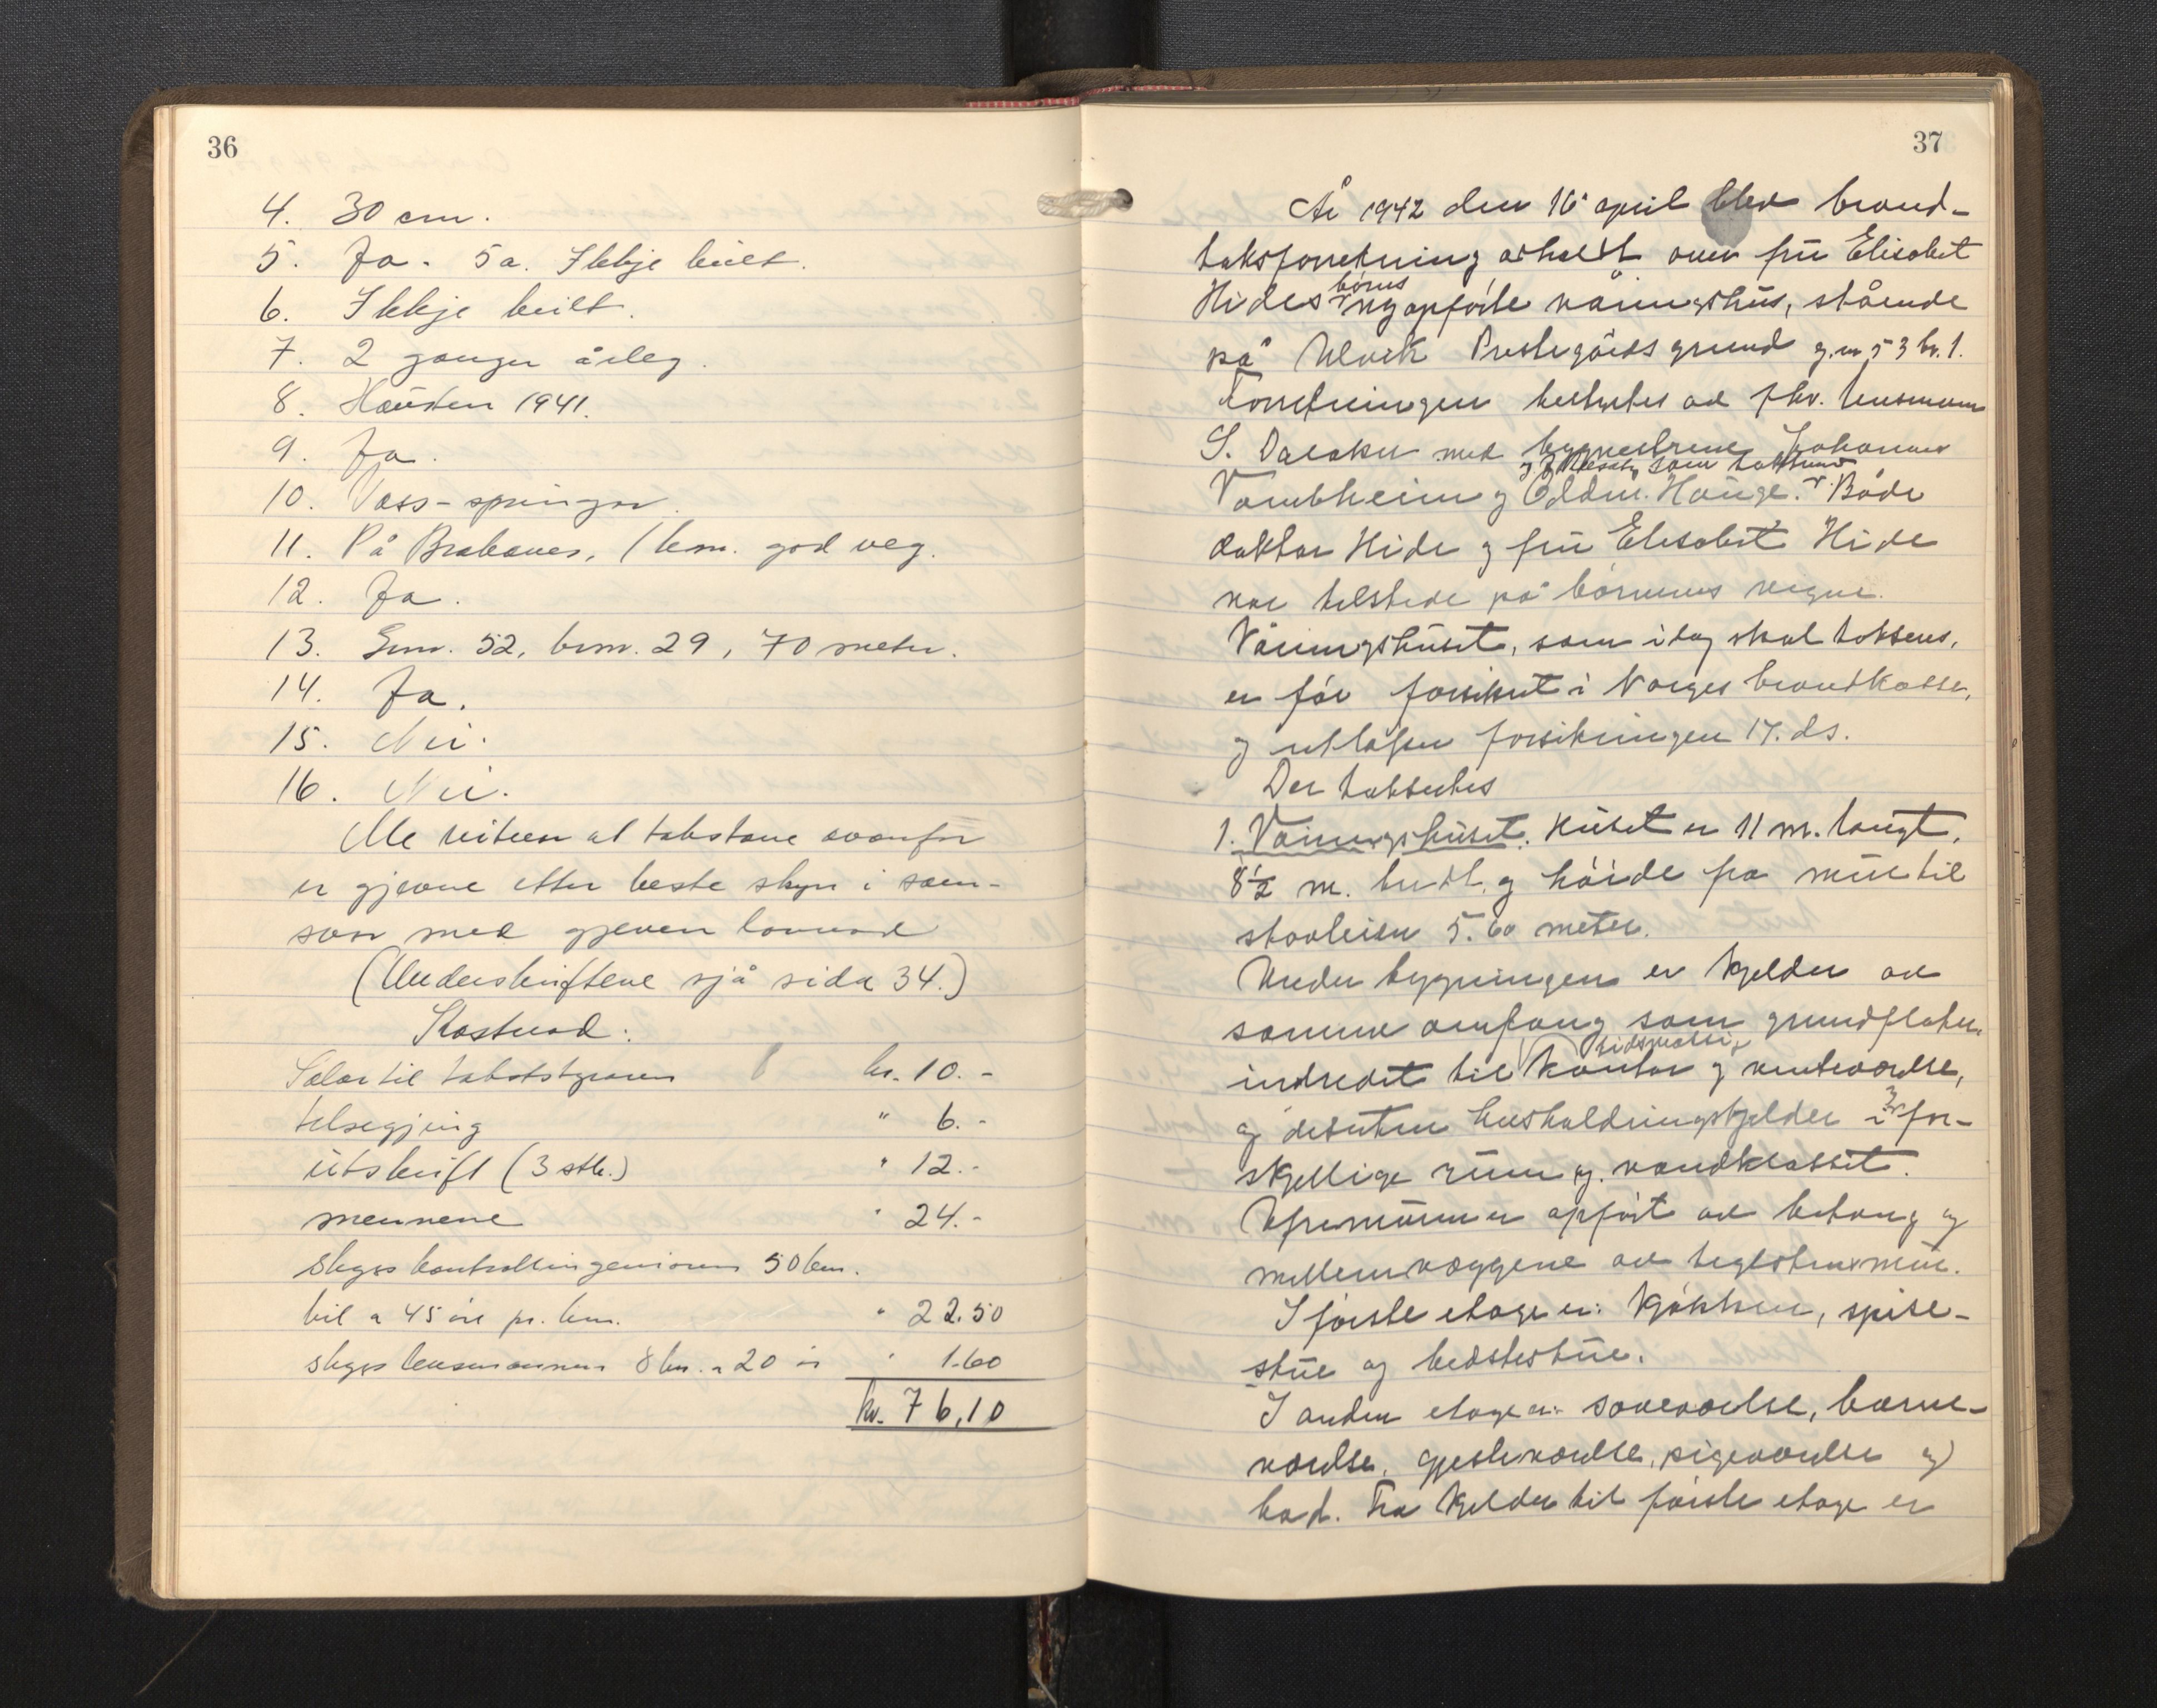 36
4. 30 cm.
5. Ja. 5a. Ikkje kult.
6. Ikkje kult.
7. 2 gonger årleg.
8. Hausten 1941.
9. Ja.
10. Vass-springar.
11. På Brakanes, 1 km. god veg.
12. Ja.
13. Gnr. 52, brnr. 29, 70 meter.
14. Ja.
15. Nei.
16. Nei.
Me vitner at takstane ovanfor
er gjevne etter beste skyn i sam-
svar med gjeven lovnad
(Underskriftene sjå sida 34.)
Kostnad:
Salar til takststyraren kr. 10.-
tilsegjing " 6.-
utskrift (3 stk.) " 12.-
mennene " 24.-
skyss kontrollingeniøren 50 km.
bil a 45 øre pr. km. " 22.50
skyss lensmannen 8 km. a 20 ør " 1.60
kr. 76,10
37
År 1942 den 16 april blev brand-
taksforretning avholdt over frú Elisabet
Hides børns nyopførte våningshús, stående
på Ulvik Prestegårds grund g.nr. 53 br. 1.
Forretningen bestyrtes av fhv. lensmann
S. Dalaker med bygmestrene Johannes
Vambheim og Oddm. Hauge. Både
doktor Hide og frú Elisabet Hide
var tilstede på børnenes vegne.
Våningshúset, som idag skal takseres,
er før forsikret i Norges brandkasse,
og utløper forsikringen 17. ds.
Der taksertes
1. Våningshúset. Húset er 11 m. langt,
8½ m. bredt, og høide fra múr til
stavleien 5.60 meter.
Under bygningen er kjelder av
samme omfang som grundflaten,
indredet til tidsmæssig kontor og venteværelse,
og desuten husholdningskjelder i 3 for-
skjellige rúm og vandklosset.
Ytremúren er opført av betong og
mellemvæggene av teglstensmúr.
I første etage er: kjøkken, spise-
stúe og bedstestúe.
I anden etage er: soveværelse, barne-
værelse, gjesteværelse, pigeværelse og
bad. Fra kjelder til første etage er